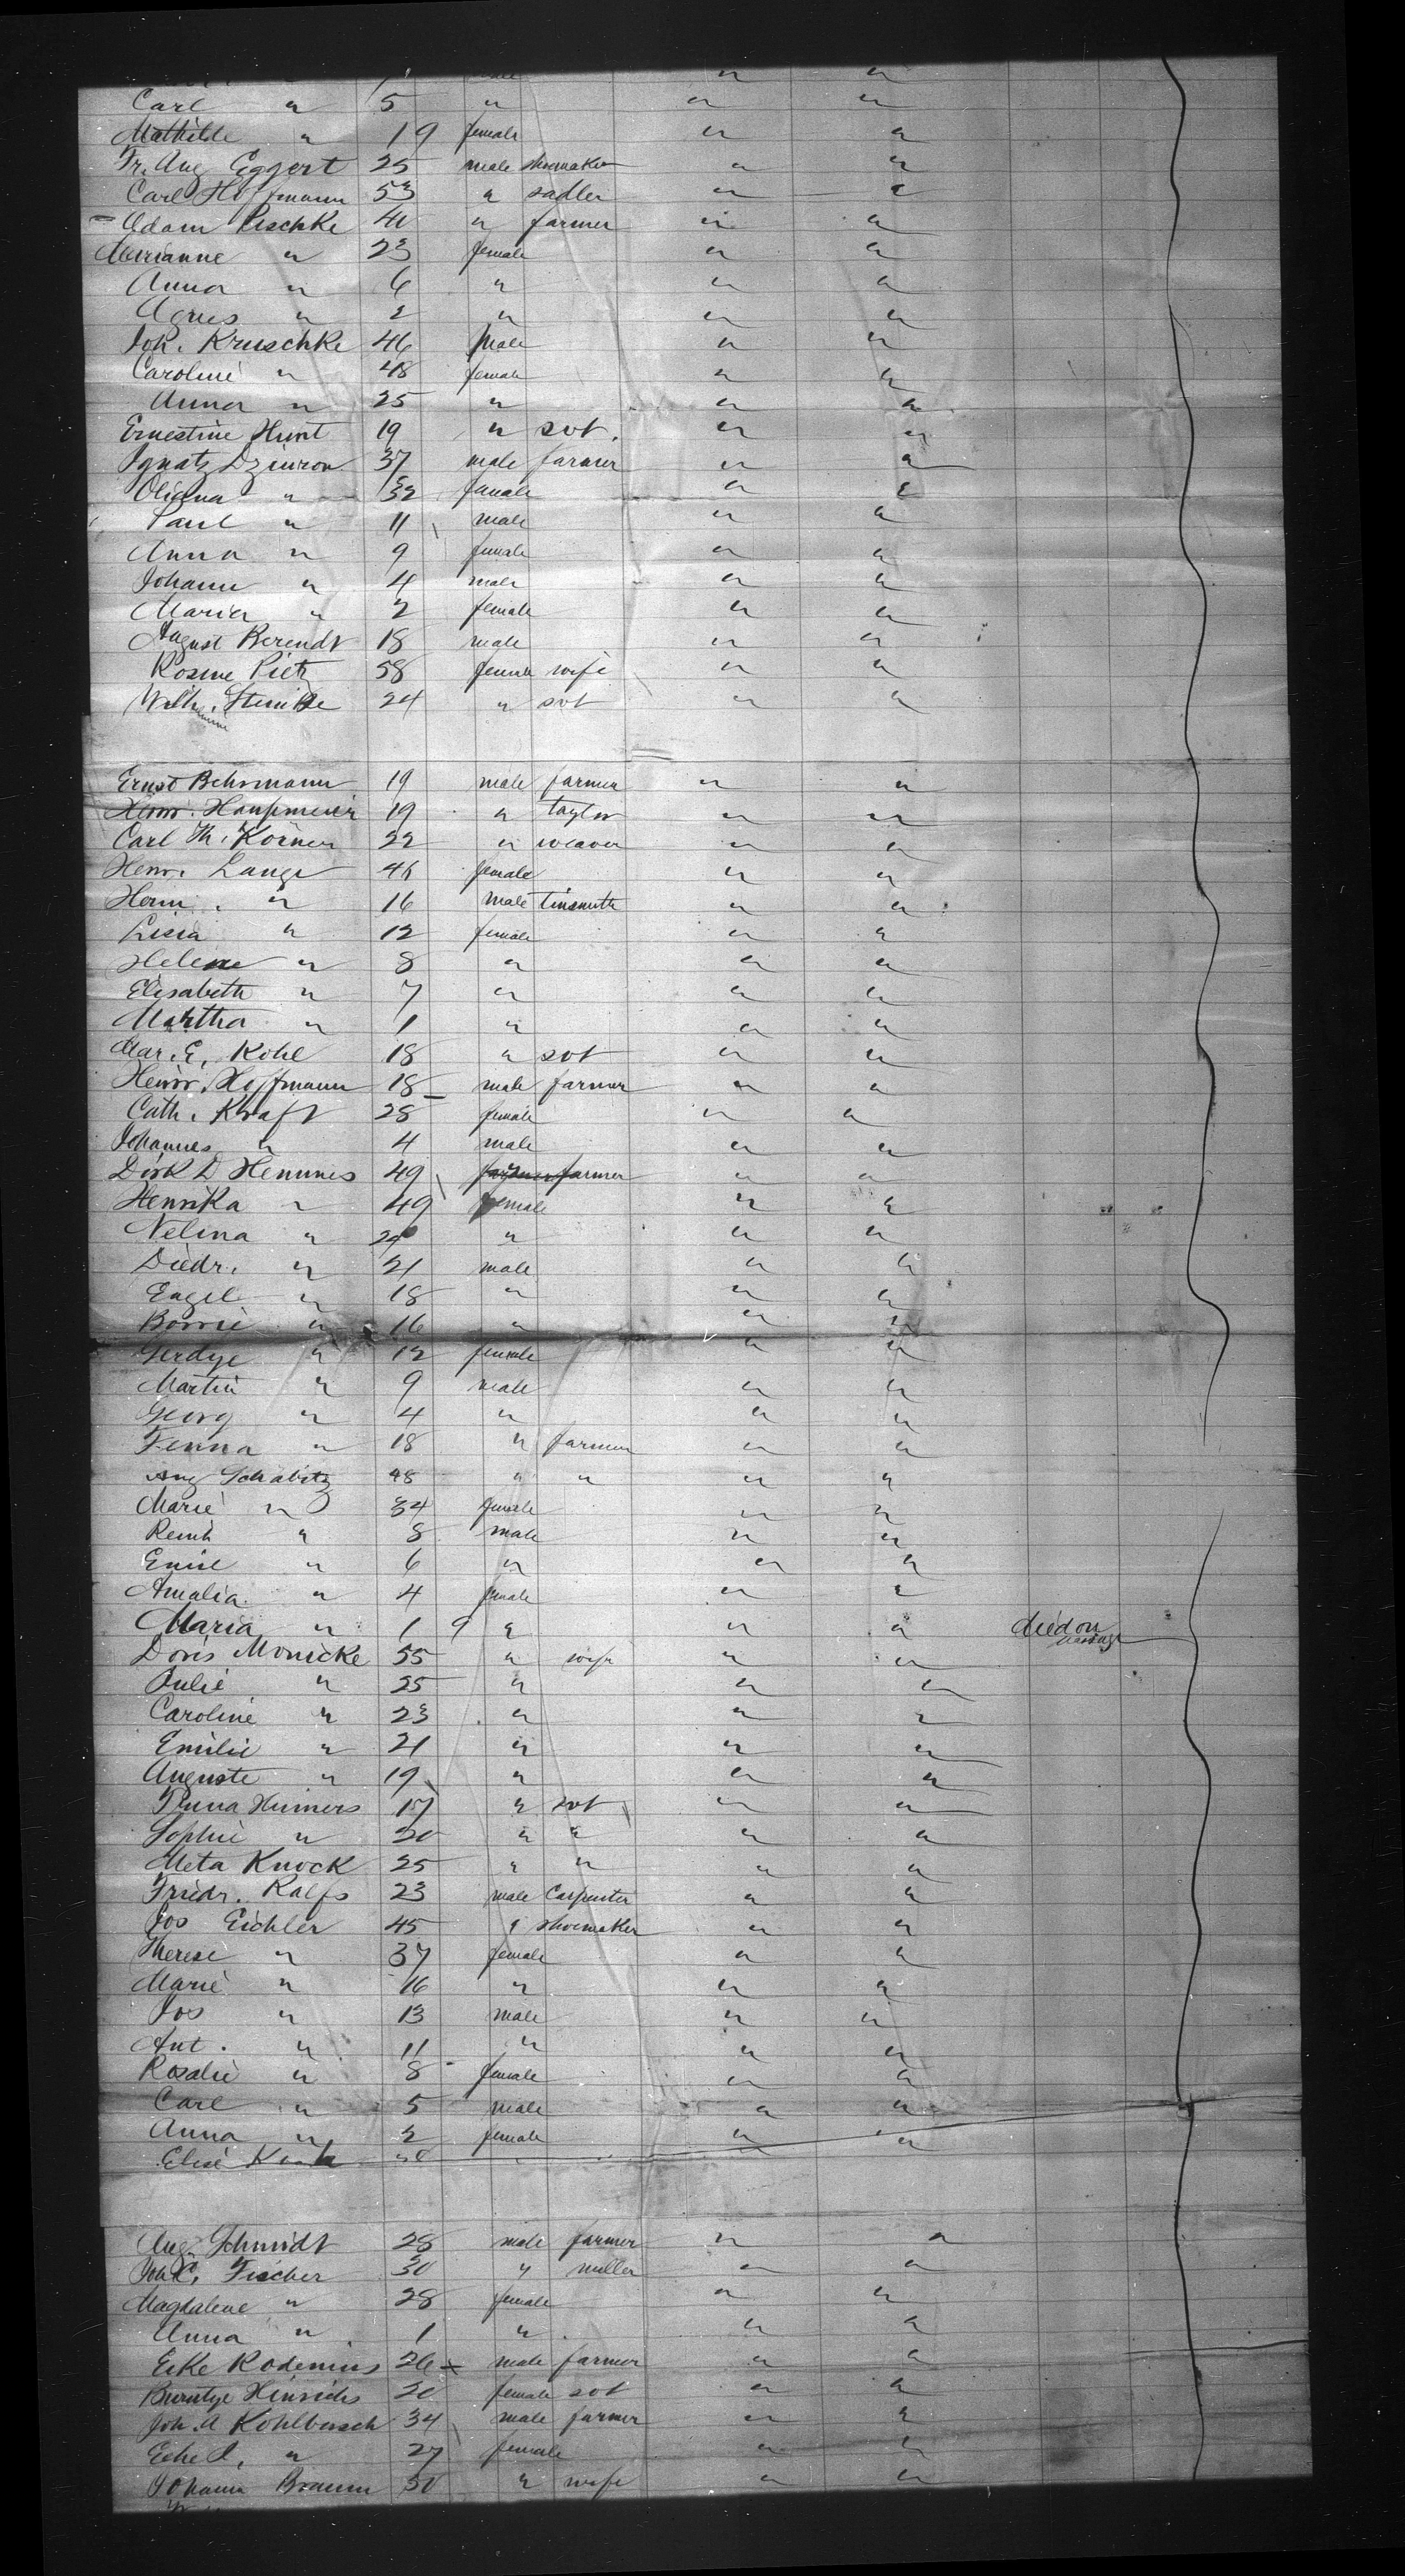 Carl " 5 " " "
Mathilde " 19 female " "
Fr. Aug Eggert 25 male shoemaker " "
Carl Hoffmann 53 " sadler " "
Adam Peschke 40 " farmer " "
Marianne " 23 female " "
Anna " 6 " " "
Agnes " 2 " " "
Joh. Kruschke 46 male " "
Caroline " 48 female " "
Anna " 25 " " "
Ernestine Hunt 19 " svt. " "
Ignatz Dziuron 37 male farmer " "
" 32 female " "
Paul " 11 male " "
Anna " 9 female " "
Johann " 4 male " "
Maria " 2 female " "
August Berendt 18 male " "
Rosine Pietz 58 female wife " "
Wilh. 24 " svt " "
Ernst Behrmann 19 male farmer " "
19 " taylor " "
Carl Th. Körner 22 " weaver " "
Henr. Lange 46 female " "
Herm. " 16 male tinsmith " "
" 12 female " "
Helene " 8 " " "
Elisabeth " 7 " " "
Martha " 1 " " "
Mar. E. Kohl 18 " svt " "
Heinr. Hoffmann 18 male farmer " "
Cath. Kraft 28 female " "
Johannes " 4 male " "
Dirk D Hemmes 49 farmer " "
Henrika " 49 female " "
Nelina " 24 " " "
Diedr. " 21 male " "
Engel " 18 " " "
" 16 " " "
Gerdye " 12 female " "
Martin " 9 male " "
Georg " 4 " " "
Fenna " 18 " farmer " "
Aug Schabitz 48 " " " "
Marie " 34 female " "
Reinh " 8 male " "
Emil " 6 " " "
Amalia " 4 female " "
Maria " 1 9 " " " died on passage
Doris Monicke 55 " wife " "
Julie " 25 " " "
Caroline " 23 " " "
Emilie " 21 " " "
Auguste " 19 " " "
17 " svt " "
Sophie " 20 " " " "
Meta Knock 25 " " " "
Friedr. Ralfs 23 male Carpenter " "
Jos Eichler 45 " shoemaker " "
Therese " 37 female " "
Marie " 16 " " "
Jos " 13 male " "
Ant. " 11 " " "
Rosalie " 8 female " "
Carl " 5 male " "
Anna " 2 female " "
Elise
Aug. Schmidt 28 male farmer " "
Joh. C. Fischer 30 " miller " "
Magdalene " 28 female " "
Anna " 1 " " "
Eike Rodenius 26 male farmer " "
Hinrichs 20 female svt " "
Joh. A Kohlbusch 34 male farmer " "
" 27 female " "
Johann Braun 30 " wife " "